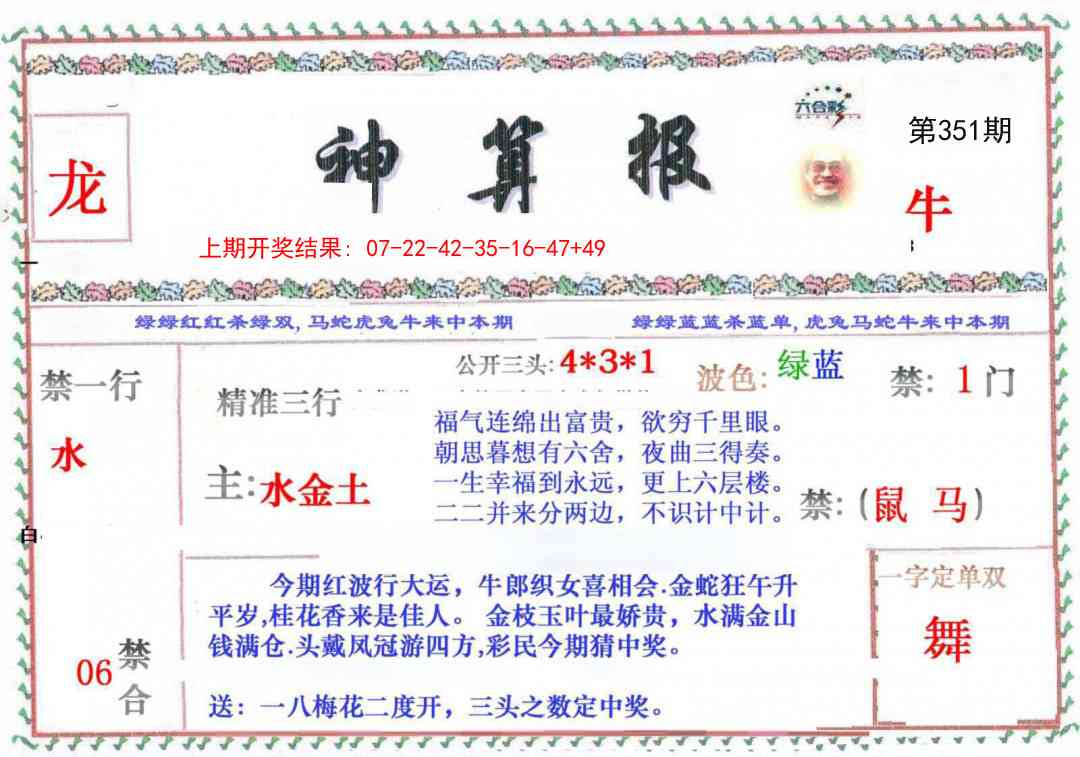 六合彩
第351期
龙
神算报
牛
上期开奖结果：07-22-42-35-16-47+49
绿绿红红杀绿双,马蛇虎兔牛来中本期
绿绿蓝蓝杀蓝单,虎兔马蛇牛来中本期
公开三头:4*3*1
波色:绿蓝
禁:1门
禁一行
水
精准三行
主:水金土
福气连绵出富贵，欲穷千里眼。
朝思暮想有六舍，夜曲三得奏。
一生幸福到永远，更上六层楼。
二二并来分两边，不识计中计。
禁:(鼠 马)
白
今期红波行大运，牛郎织女喜相会.金蛇狂午升
平岁,桂花香来是佳人。金枝玉叶最娇贵，水满金山
钱满仓.头戴凤冠游四方,彩民今期猜中奖。
送：一八梅花二度开，三头之数定中奖。
一字定单双
舞
06禁合